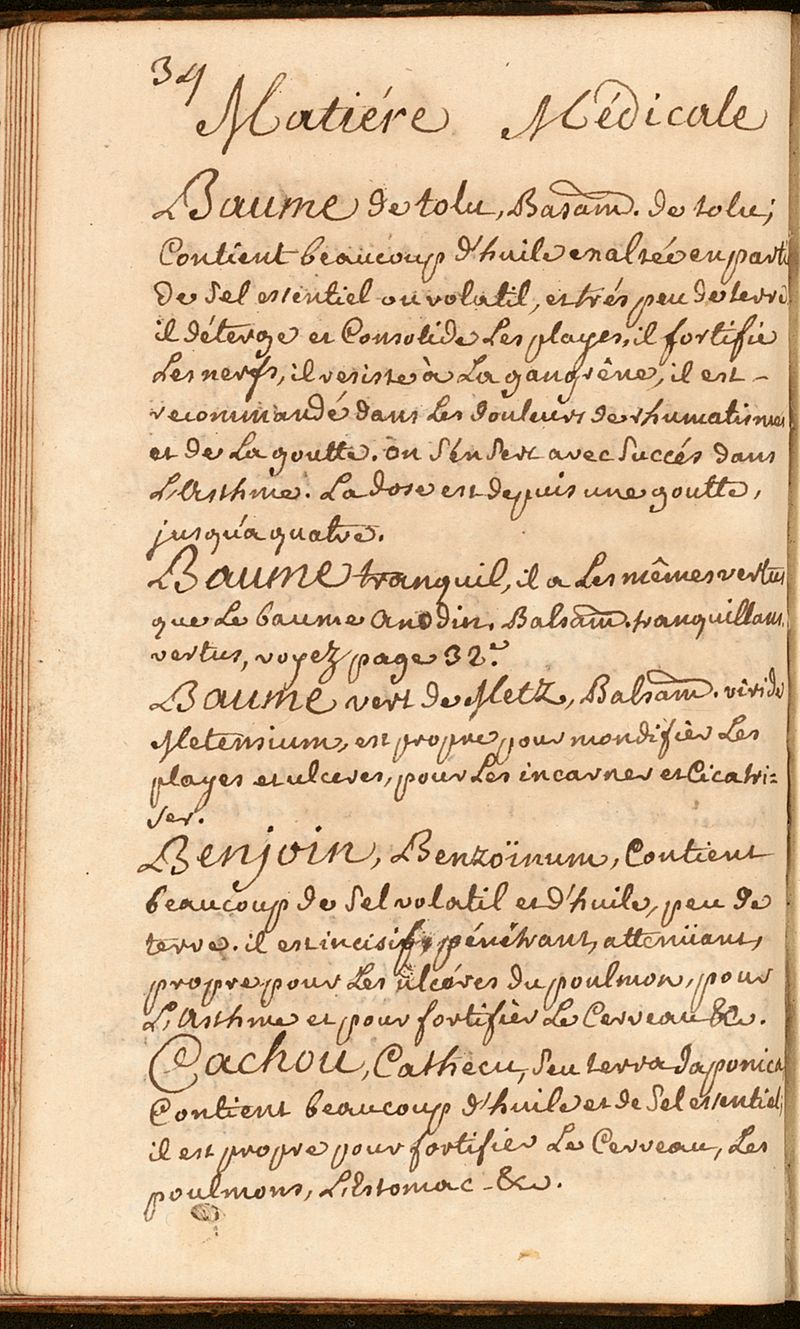 34
Matiére Médicale
Baume de tolu, Balsam. de tolu;
Contient beaucoup d'huile exaltée en parti
de Sel essentiel ou volatil, et trés peu de terre
il déterge et Consolide Les playes, il fortifie
Les nerfs, il resiste à La gangrêne, il est -
recommandé dans Les douleurs de rhumatismes
et de La goutte. on S'en Sert avec Succés dans
L'Asthme. La dose est depuis une goutte,
jusqu'a quatre.
Baume tranquil, il a Les mêmes vertus
que Le baume Anodin. Balsam. tranquillans
vertus, voyez page 32.
Baume vert de Metz, Balsam. viride
Metensium, est propre pour mondifiér Les
playes et ulceres, pour Les incarner et Cicatri=
ser.
Benjoin, Benzoïnum, Contient
beaucoup de Sel volatil et d'huile, peu de
terre. il est incisif, pénétrant, attenüant,
propre pour Les ülcéres du poulmon, pour
L'Asthme et pour fortifiér Le Cerveau &c.
Cachou, Cathecu, Seu terra Japonica
Contient beaucoup d'huile et de Sel essentiel;
il est propre pour fortifier Le Cerveau, Les
poulmons, L'Estomac - &c.